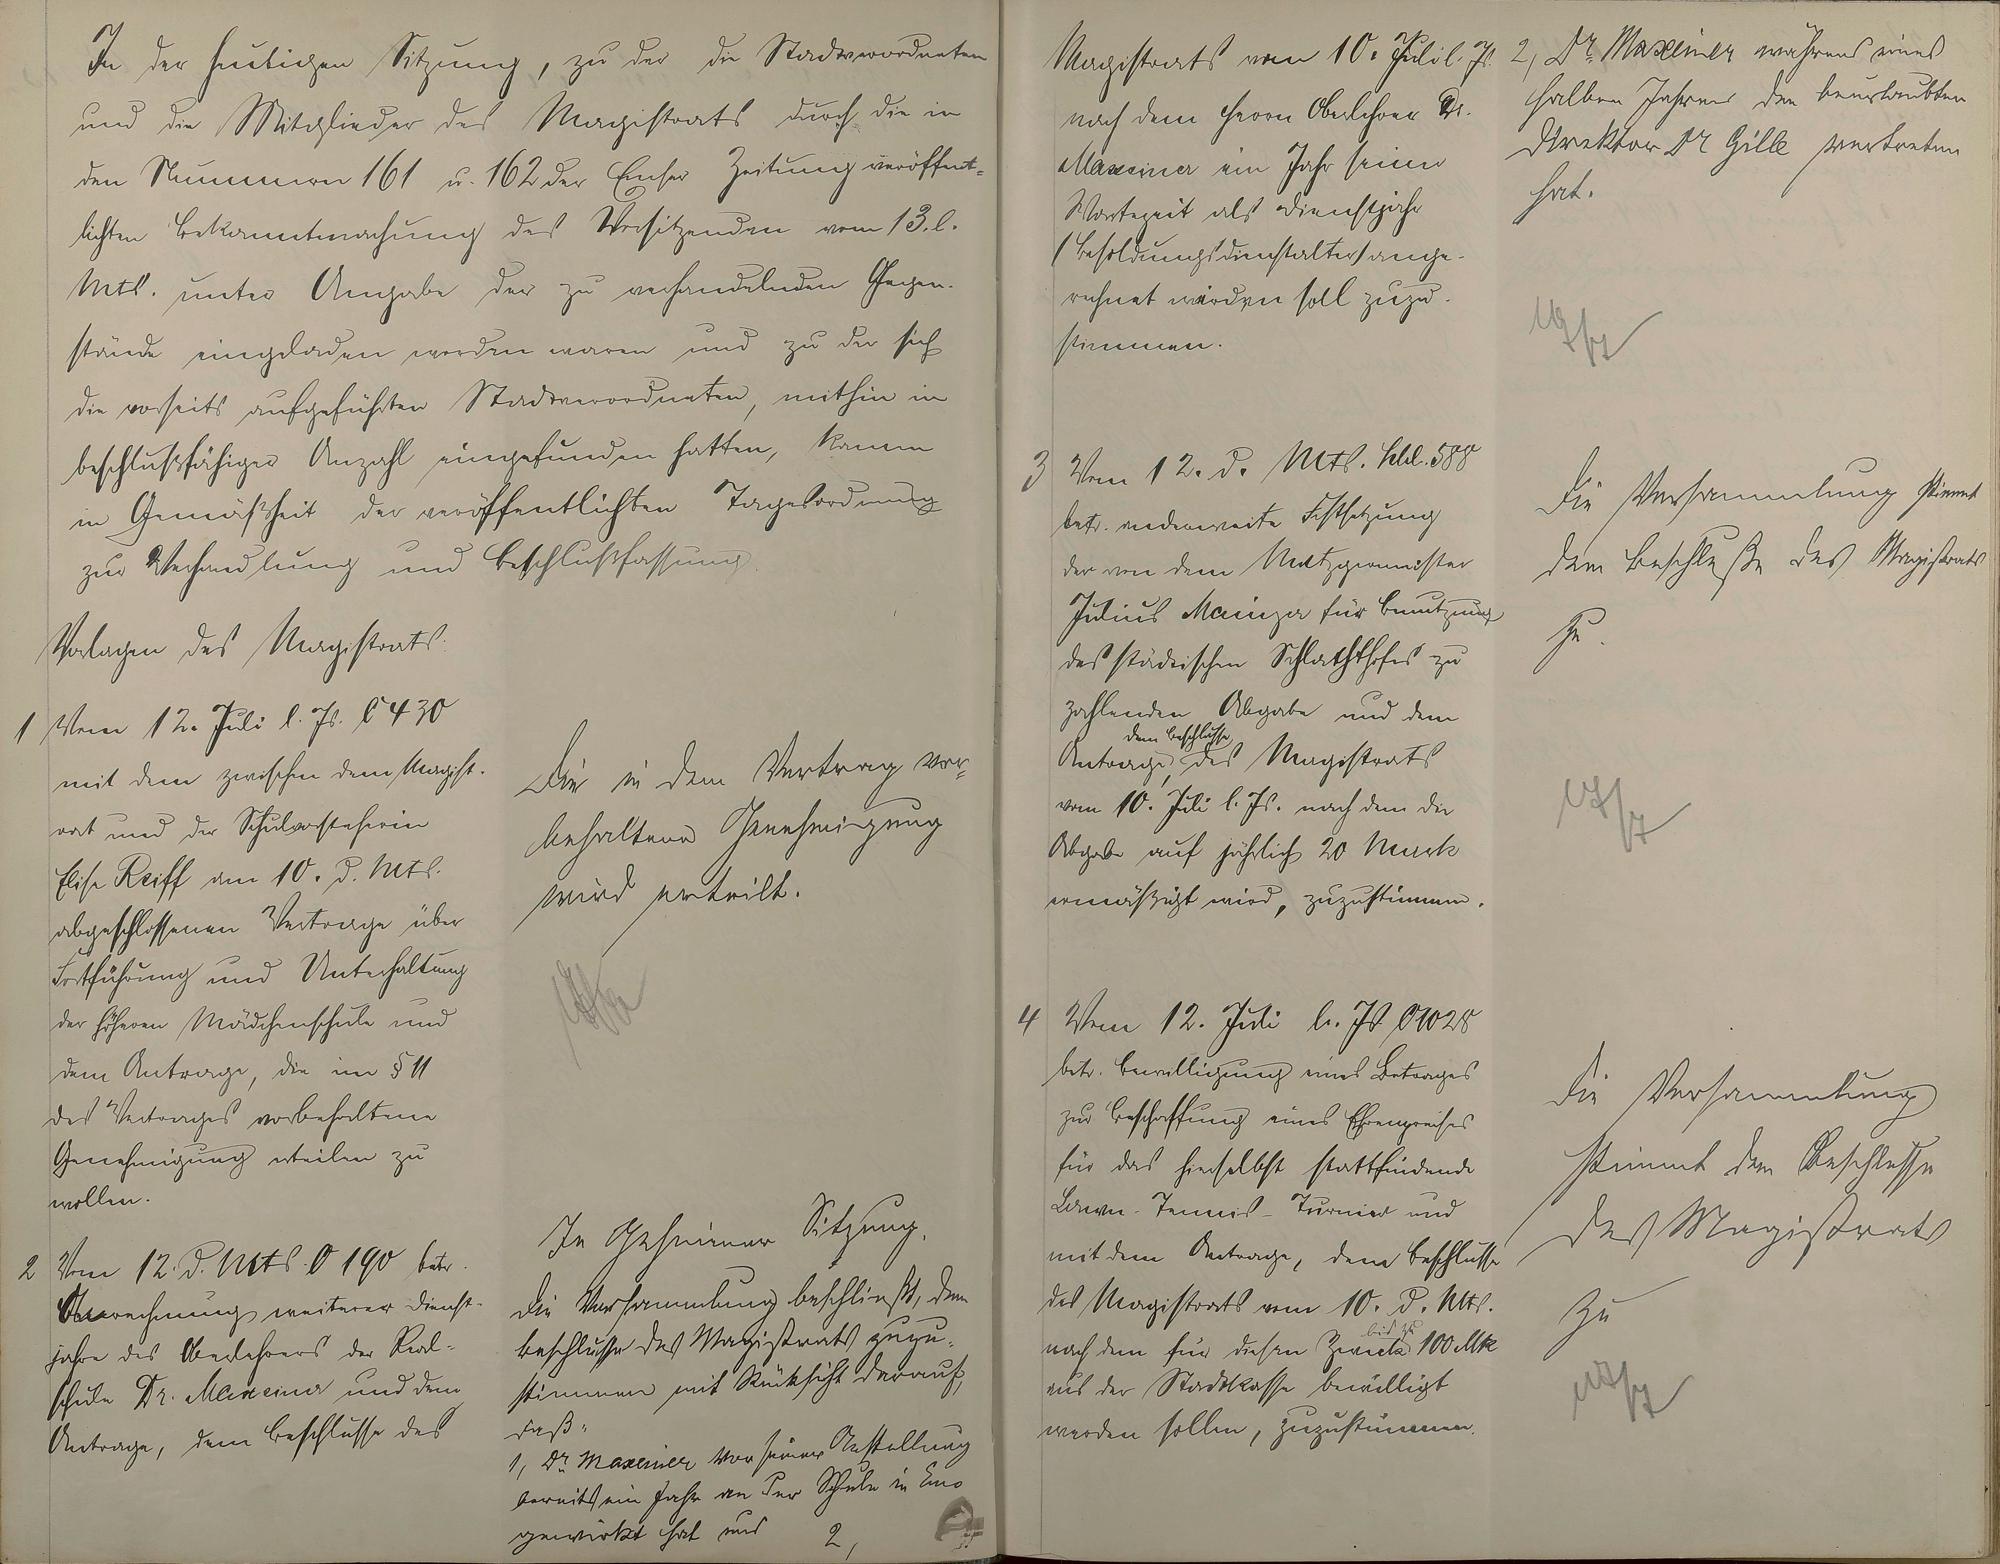 In der heutigen Sitzung, zu der die Stadtverordneten
und die Mitglieder des Magistrats durch die in
den Nummern 161 u. 162 der Emser Zeitung veröffent-
lichten Bekanntmachung des Vorsitzenden vom 13. l.
Mts. unter Angabe der zu verhandelnden Gegen-
stände eingeladen worden waren und zu der sich
die vorseits aufgeführten Stadtverordneten, mithin in
beschlußfähiger Anzahl eingefunden hatten, kamen
in Gemäßheit der veröffentlichten Tagesordnung
zur Verhandlung und Beschlußfassung.
Vorlagen des Magistrats:
1 Vom 12. Juli l. Js. C 430
mit dem zwischen dem Magist-
rat und der Schulvorsteherin
Elise Reiff am 10. d. Mts.
abgeschlossenen Vertrage über
Fortführung und Unterhaltung
der höheren Mädchenschule und
dem Antrage, die im § 11
des Vertrages vorbehaltene
Genehmigung erteilen zu
wollen.
Die in dem Vertrag vor-
behaltene Genehmigung
wird erteilt.
2 Vom 12. d. Mts. O 190 betr.
Anrechnung weiterer Dienst-
jahre des Oberlehrers der Real-
schule Dr. Maxeiner und dem
Antrage, dem Beschlusse des
In Geheimer Sitzung.
Die Versammlung beschließt, dem
Beschlusse des Magistrats zuzu-
stimmen mit Rücksicht darauf,
daß:
1, Dr. Maxeiner vor seiner Anstellung
bereits ein Jahr an der Schule in Ems
gewirkt hat und 2,
Magistrats vom 10. Juli l. Js.
nach dem Herrn Oberlehrer Dr.
Maxeiner ein Jahr seiner
Wartezeit als Dienstjahr
(Besoldungsdienstalter) ange-
rechnet werden soll zuzu-
stimmen.
2, Dr. Maxeiner während eines
halben Jahres den beurlaubten
Direktor Dr Gille vertreten
hat.
3 Vom 12. d. Mts. 588
betr. anderweite Festsetzung
der von dem Metzgermeister
Julius Mainzer für Benutzung
des städtischen Schlachthofes zu
zahlenden Abgabe und dem
dem Beschlusse
Antrage, des Magistrats
vom 10. Juli l. Js. nach dem die
Abgabe auf jährlich 20 Mark
ermäßigt wird, zuzustimmen.
Die Versammlung stimmt
dem Beschluße des Magistrats
zu.
4 Vom 12. Juli l. Js. O 1028
betr. Bewilligung eines Betrages
zur Beschaffung eines Ehrenpreises
für das hierselbst stattfindende
Lawn-Tennis-Turnier und
mit dem Antrage, dem Beschlusse
des Magistrats vom 10. d. Mts.
bis zu
nach dem für diesen Zweck 100 Mk
aus der Stadtkasse bewilligt
werden sollen, zuzustimmen.
Die Versammlung
stimmt dem Beschlusse
des Magistrats
zu